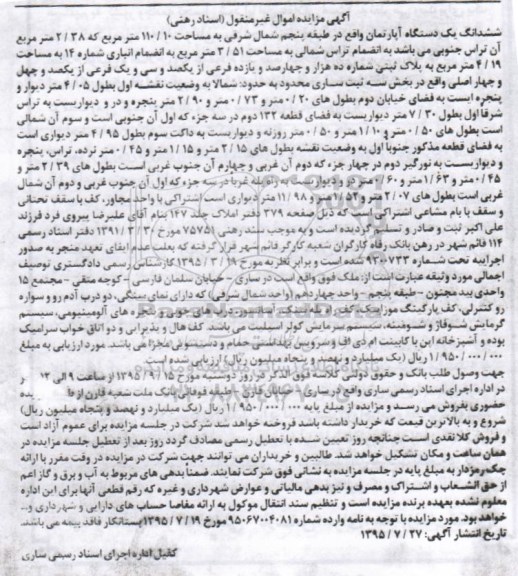 آگهی مزایده اموال غیرمنقول (اسناد رهنی)
ششدانگ یک دستگاه آپارتمان واقع در طبقه پنجم شمال شرقی به مساحت ۱۰ / ۱۱۰ متر مربع که ۳۸ / ۲ متر مربع
آن تراس جنوبی می باشد به انضمام تراس شمالی به مساحت ۵۱ / ۳ متر مربع به انضمام انباری شماره ۱۴ به مساحت
۱۹ / ۴ متر مربع به پلاک ثبتی شماره ده هزار و چهارصد و یازده فرعی از یکصد و سی و یک فرعی از یکصد و چهل
و چهار اصلی واقع در بخش سه ثبت ساری محدود به حدود: شمالا به وضعیت نقشه اول بطول ۰۵ / ۴ متر دیوار و
پنجره ایست به فضای خیابان دوم بطول های ۲۰ / ۰ متر و ۷۳ / ۰ متر و ۹۰ / ۲ متر پنجره و در و دیواریست به تراس
شرقا اول بطول ۳۰ / ۷ متر دیواریست به فضای قطعه ۱۳۲ دوم در سه جزء که اول آن جنوبی است و سوم آن شمالی
است بطول های ۵۰ / ۰ متر و ۱۰ / ۱ متر و ۵۰ / ۰ متر روزنه و دیواریست به داکت سوم بطول ۹۵ / ۴ متر دیواری است
به فضای قطعه مذکور جنوباً اول به وضعیت نقشه بطول های ۱۵ / ۲ متر و ۱۵ / ۱ متر و ۴۵ / ۰ متر نرده، تراس، پنجره
و دیواریست به نورگیر دوم در چهار جزء که دوم آن غربی و چهارم آن جنوب غربی است بطول های ۳۹ / ۲ متر و
۴۵ / ۰ متر و ۶۳ / ۱ متر و ۶۰ / ۰ متر در و دیواریست به راه پله غرباً در سه جزء که اول آن جنوب غربی و دوم آن شمال
غربی است بطول های ۰۷ / ۲ متر و ۵۲ / ۱ متر و ۹۸ / ۱۱ متر دیواری است اشتراکی با واحد مجاور، کف با سقف تحتانی
و سقف با بام مشاعی اشتراکی است که ذیل صفحه ۳۷۹ دفتر املاک جلد ۱۴۷ بنام آقای علیرضا پیروی فرد فرزند
علی اکبر ثبت و صادر و تسلیم گردیده است و به موجب سند رهنی ۷۵۷۵۱ مورخ ۳۰ / ۳ / ۱۳۹۱ دفتر اسناد رسمی
۱۱۴ قائم شهر در رهن بانک رفاه کارگران شعبه کارگر قائم شهر قرار گرفته که بعلت عدم ایفای تعهد منجر به صدور
اجراییه تحت شماره ۹۳۰۰۷۳۳ شده است و برابر نظریه مورخ ۱۹ / ۳ / ۱۳۹۵ کارشناس رسمی دادگستری توصیف
اجمالی مورد وثیقه عبارت است از: ملک فوق واقع است در ساری - خیابان سلمان فارسی - کوچه متقی - مجتمع ۱۵
واحدی بید مجنون - طبقه پنجم - واحد چهاردهم (واحد شمال شرقی) که دارای نمای بیتگی، دو درب آدم رو و سواره
رو کنترلی، کف پارکینگ موزاییک، کف، سنگ، آسانسور، درب های چوبی، پنجره های آلومینیومی، سیستم
گرمایش شوفاژ و شومینه، سیستم سرمایش کولر اسپلیت می باشد. کف هال و پذیرایی و دو اتاق خواب سرامیک
بوده و آشپزخانه اپن با کابینت ام دی اف و سرویس بهداشتی حمام و دستشویی مجزا می باشد. مورد ارزیابی به مبلغ
۰۰۰ / ۰۰۰ / ۹۵۰ / ۱ ریال (یک میلیارد و نهصد و پنجاه میلیون ریال) ارزیابی شده است.
جهت وصول طلب بانک و حقوق دولتی کلاسه فوق الذکر در روز دوشنبه مورخ ۲۴ / ۸ / ۱۳۹۵ از ساعت ۹ الی ۱۲
در اداره اجرای اسناد رسمی ساری واقع در ساری طبقه فوقانی بانک ملت شعبه قارن از طریق مزایده
حضوری بفروش می رسد و مزایده از مبلغ پایه ۰۰۰ / ۰۰۰ / ۹۵۰ / ۱ ریال (یک میلیارد و نهصد و پنجاه میلیون ریال)
شروع و به بالاترین قیمت که خریدار داشته باشد فروخته خواهد شد شرکت در جلسه مزایده برای عموم آزاد است
و فروش کلا نقدی است چنانچه روز تعیین شده با تعطیل رسمی مصادف گردد روز بعد از تعطیل جلسه مزایده در
همان ساعت و مکان تشکیل خواهد شد. طالبین و خریداران می توانند جهت شرکت در مزایده در وقت مقرر با ارائه
چک رمزدار به مبلغ پایه در جلسه مزایده به نشانی فوق شرکت نمایند. ضمناً بدهی های مربوط به آب و برق و گاز اعم
از حق انشعاب و اشتراک و مصرف و نیز بدهی مالیاتی و عوارض شهرداری و غیره که رقم قطعی آنها برای این اداره
معلوم نشده بعهده برنده مزایده است و تنظیم سند انتقال موکول به ارائه مفاصا حساب های دارایی و شهرداری و...
خواهد بود. مورد مزایده با توجه به نامه وارده شماره ۹۵۰۶۷۰۰۴۰۸۱ مورخ ۱۹ / ۷ / ۱۳۹۵ بستانکار فاقد بیمه می باشد.
تاریخ انتشار آگهی: ۲۷ / ۷ / ۱۳۹۵
کفیل اداره اجرای اسناد رسمی ساری